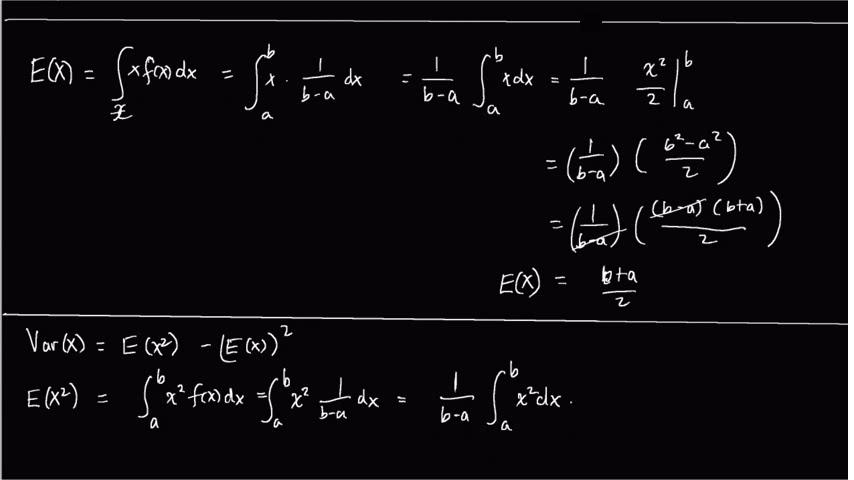 E(X) = ∫_𝓍 x f(x) dx = ∫_a^b x · 1/(b-a) dx = 1/(b-a) ∫_a^b x dx = 1/(b-a) x²/2 |_a^b
= (1/(b-a)) ((b²-a²)/2)
= (1/(b-a)) ((b-a)(b+a)/2)
E(X) = (b+a)/2
Var(X) = E(X²) - (E(X))²
E(X²) = ∫_a^b x² f(x) dx = ∫_a^b x² 1/(b-a) dx = 1/(b-a) ∫_a^b x² dx .